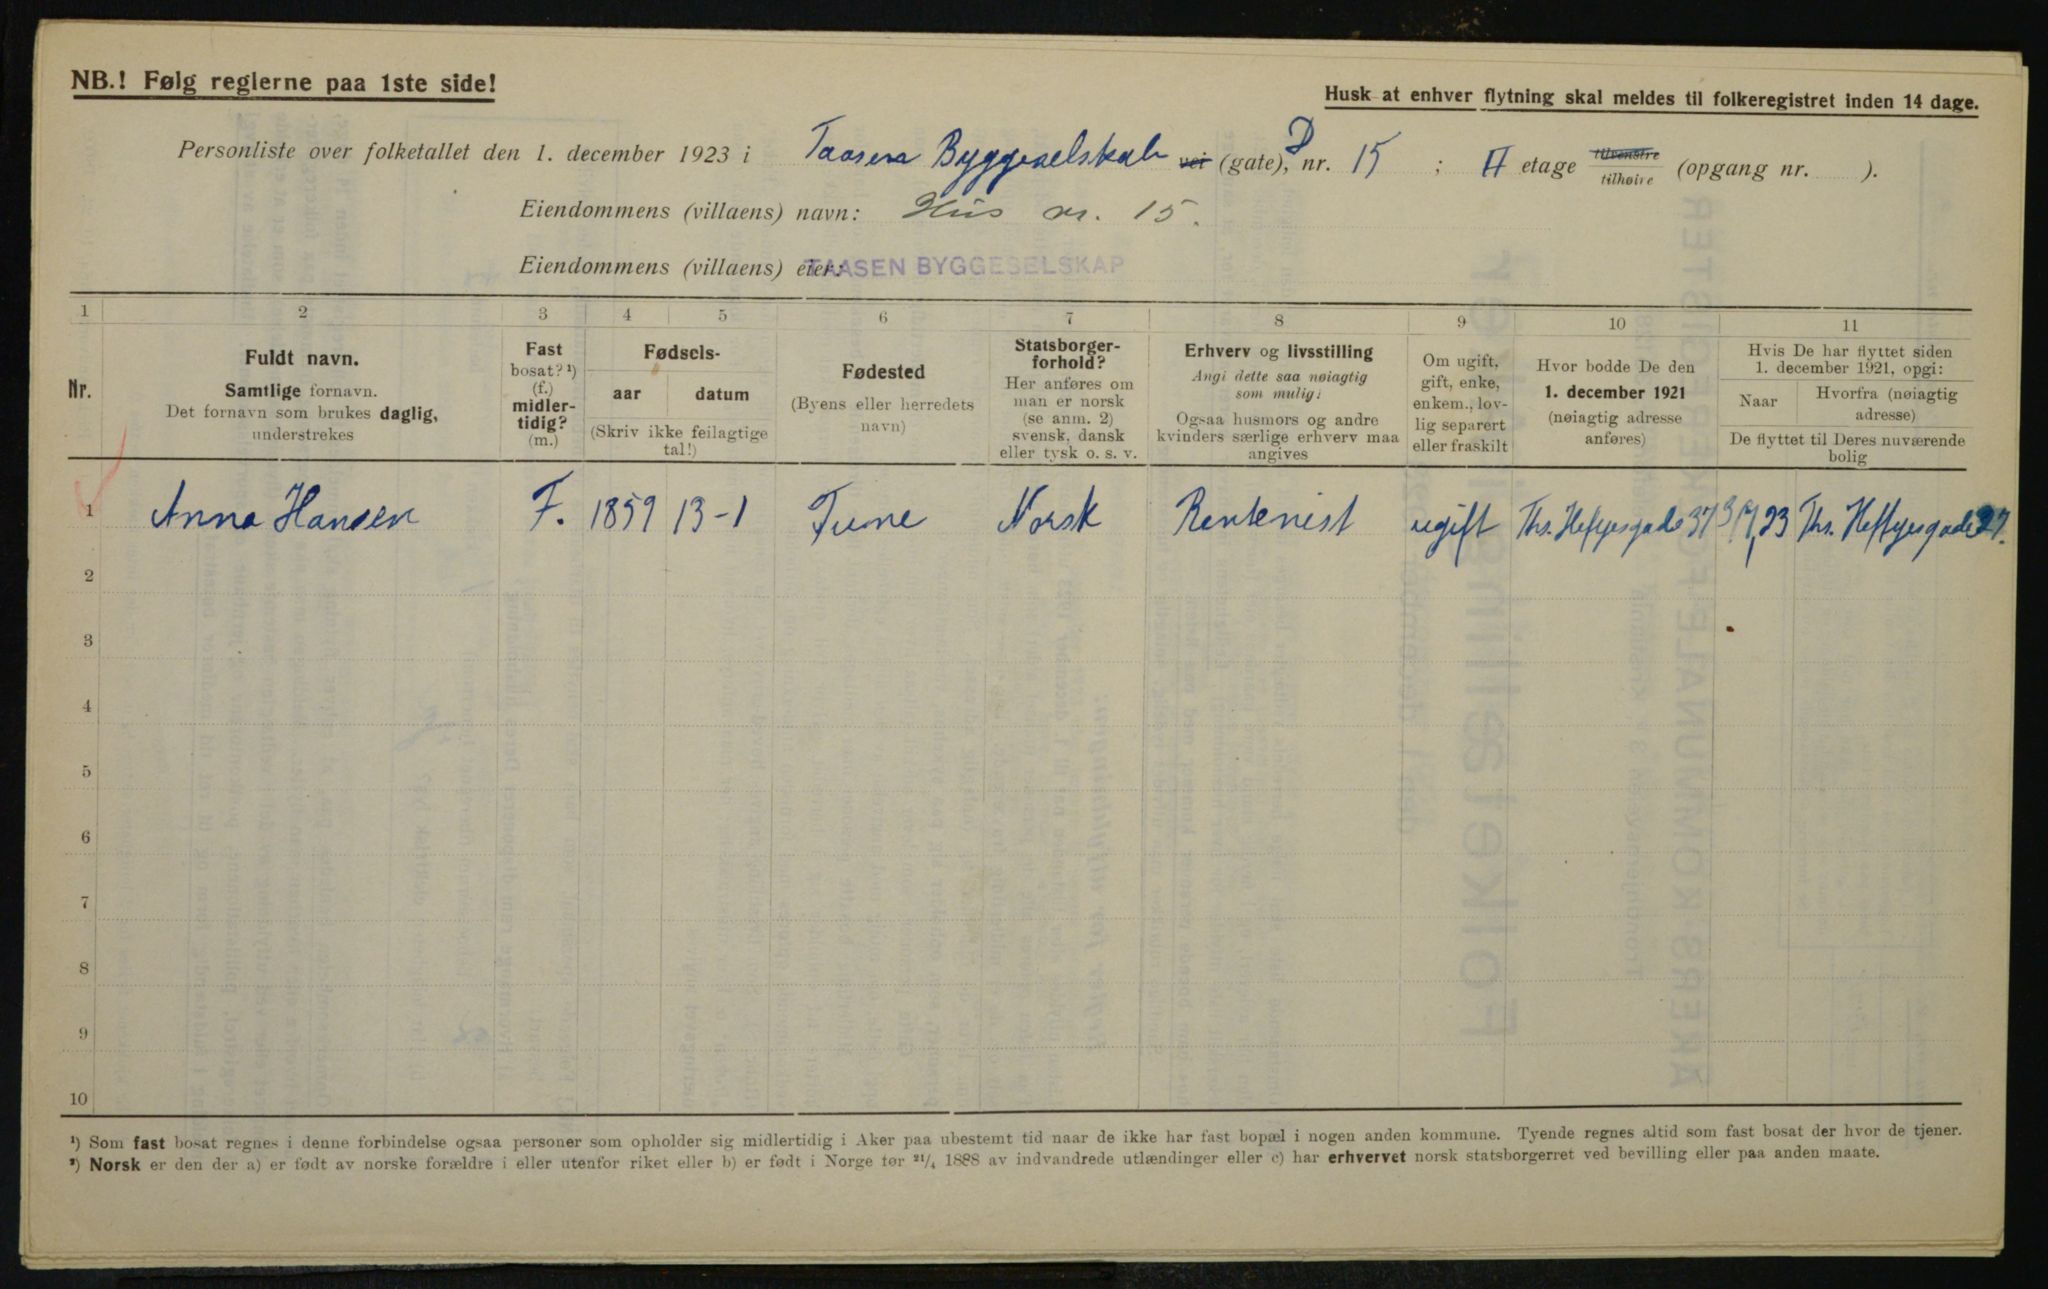 NB.! Følg reglerne paa 1ste side!
Husk at enhver flytning skal meldes til folkeregistret inden 14 dage.
Personliste over folketallet den 1. december 1923 i Taasen Byggeselskab vei (gate), D nr. 15 ; II etage tilvenstre tilhøire (opgang nr. ).
Eiendommens (villaens) navn: Hus nr. 15.
Eiendommens (villaens) eier: TAASEN BYGGESELSKAP
1 2 3 4 5 6 7 8 9 10 11
Nr.
Fuldt navn.
Samtlige fornavn.
Det fornavn som brukes daglig,
understrekes
Fast
bosat? ¹)
(f.)
midler-
tidig?
(m.)
Fødsels-
aar datum
(Skriv ikke feilagtige
tal!)
Fødested
(Byens eller herredets
navn)
Statsborger-
forhold?
Her anføres om
man er norsk
(se anm. 2)
svensk, dansk
eller tysk o. s. v.
Erhverv og livsstilling
Angi dette saa nøiagtig
som mulig:
Ogsaa husmors og andre
kvinders særlige erhverv maa
angives
Om ugift,
gift, enke,
enkem., lov-
lig separert
eller fraskilt
Hvor bodde De den
1. december 1921
(nøiagtig adresse
anføres)
Hvis De har flyttet siden
1. december 1921, opgi:
Naar
Hvorfra (nøiagtig
adresse)
De flyttet til Deres nuværende
bolig
1 Anna Hansen F. 1859 13-1 Tune Norsk Rentenist ugift Ths. Heftyesgade 37 Ths. Heftyesgade 27.
2
3
4
5
6
7
8
9
10
¹) Som fast bosat regnes i denne forbindelse ogsaa personer som opholder sig midlertidig i Aker paa ubestemt tid naar de ikke har fast bopæl i nogen anden kommune. Tyende regnes altid som fast bosat der hvor de tjener.
²) Norsk er den der a) er født av norske forældre i eller utenfor riket eller b) er født i Norge før 21/4 1888 av indvandrede utlændinger eller c) har erhvervet norsk statsborgerret ved bevilling eller paa anden maate.